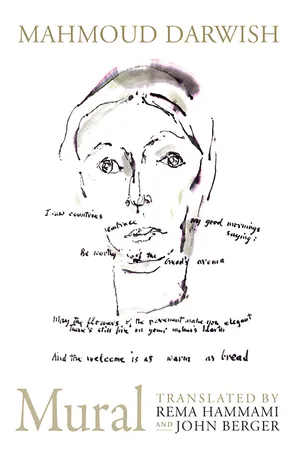 MAHMOUD DARWISH
I saw countries embrace my good mornings
saying:
Be worthy of the bread's aroma
May the flowers of the pavement make you elegant
There's still fire on your mother's hearth
And the welcome is as warm as bread
Mural
TRANSLATED BY
REMA HAMMAMI
AND JOHN BERGER